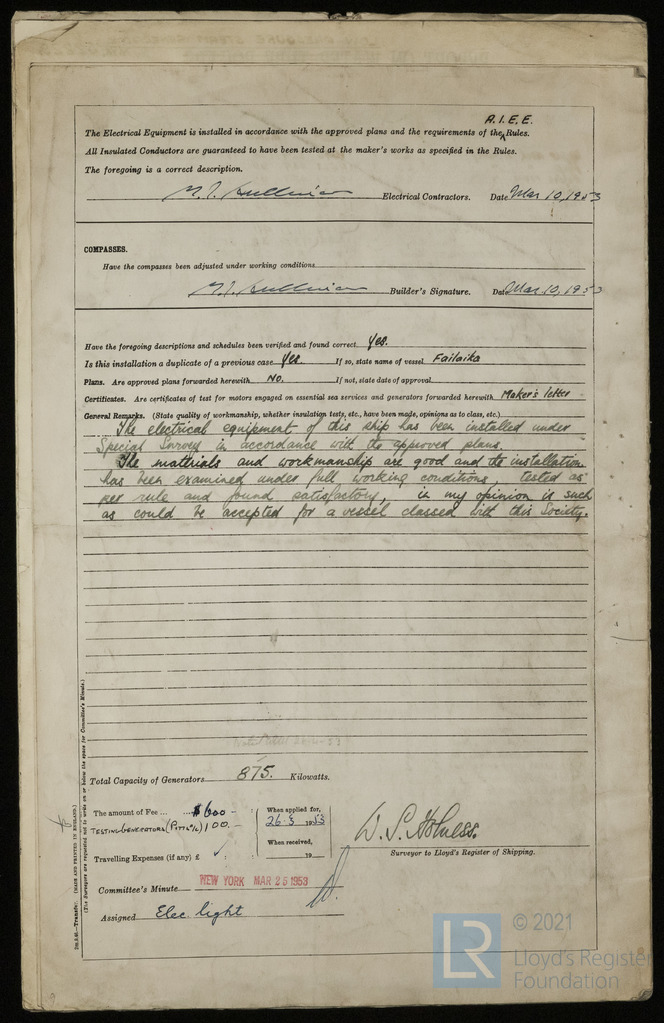 A.I.E.E.
The Electrical Equipment is installed in accordance with the approved plans and the requirements of the Rules.
All Insulated Conductors are guaranteed to have been tested at the maker's works as specified in the Rules.
The foregoing is a correct description.
Electrical Contractors. Date Mar 10, 1953
COMPASSES.
Have the compasses been adjusted under working conditions
Builder's Signature. Date Mar. 10, 1953
Have the foregoing descriptions and schedules been verified and found correct Yes.
Is this installation a duplicate of a previous case Yes. If so, state name of vessel Failaika
Plans. Are approved plans forwarded herewith No. If not, state date of approval
Certificates. Are certificates of test for motors engaged on essential sea services and generators forwarded herewith Maker's letter
General Remarks. (State quality of workmanship, whether insulation tests, etc., have been made, opinions as to class, etc.)
The electrical equipment of this ship has been installed under
Special Survey in accordance with the approved plans.
The materials and workmanship are good and the installation
has been examined under full working conditions, tested as
per rule and found satisfactory, is in my opinion is such
as could be accepted for a vessel classed with this Society.
Total Capacity of Generators 875. Kilowatts.
The amount of Fee ... $600 - When applied for,
26-3 1953
TESTING GENERATORS 100. -
When received,
Travelling Expenses (if any) £ 19
Committee's Minute NEW YORK MAR 25 1953
Assigned Elec. light
W. S. Holness.
Surveyor to Lloyd's Register of Shipping.
(MADE AND PRINTED IN ENGLAND.)
(The Surveyors are requested not to write on or below the space for Committee's Minute.)
LR
© 2021
Lloyd's Register
Foundation